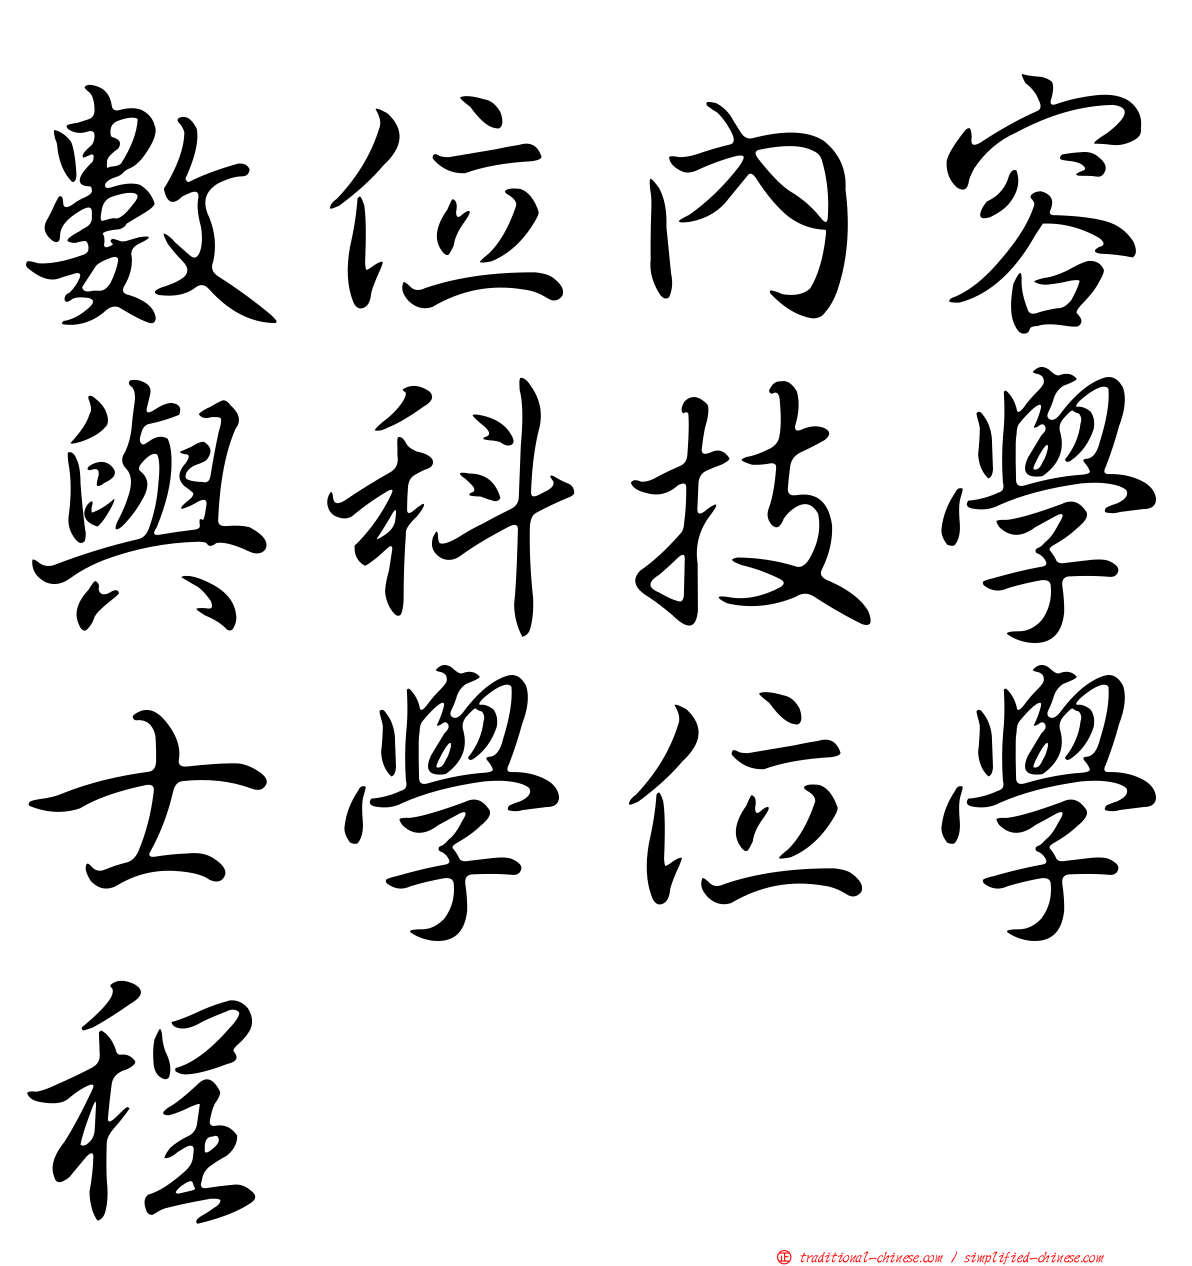 數位內容
與科技學
士學位學
程
正 traditional-chinese.com / simplified-chinese.com